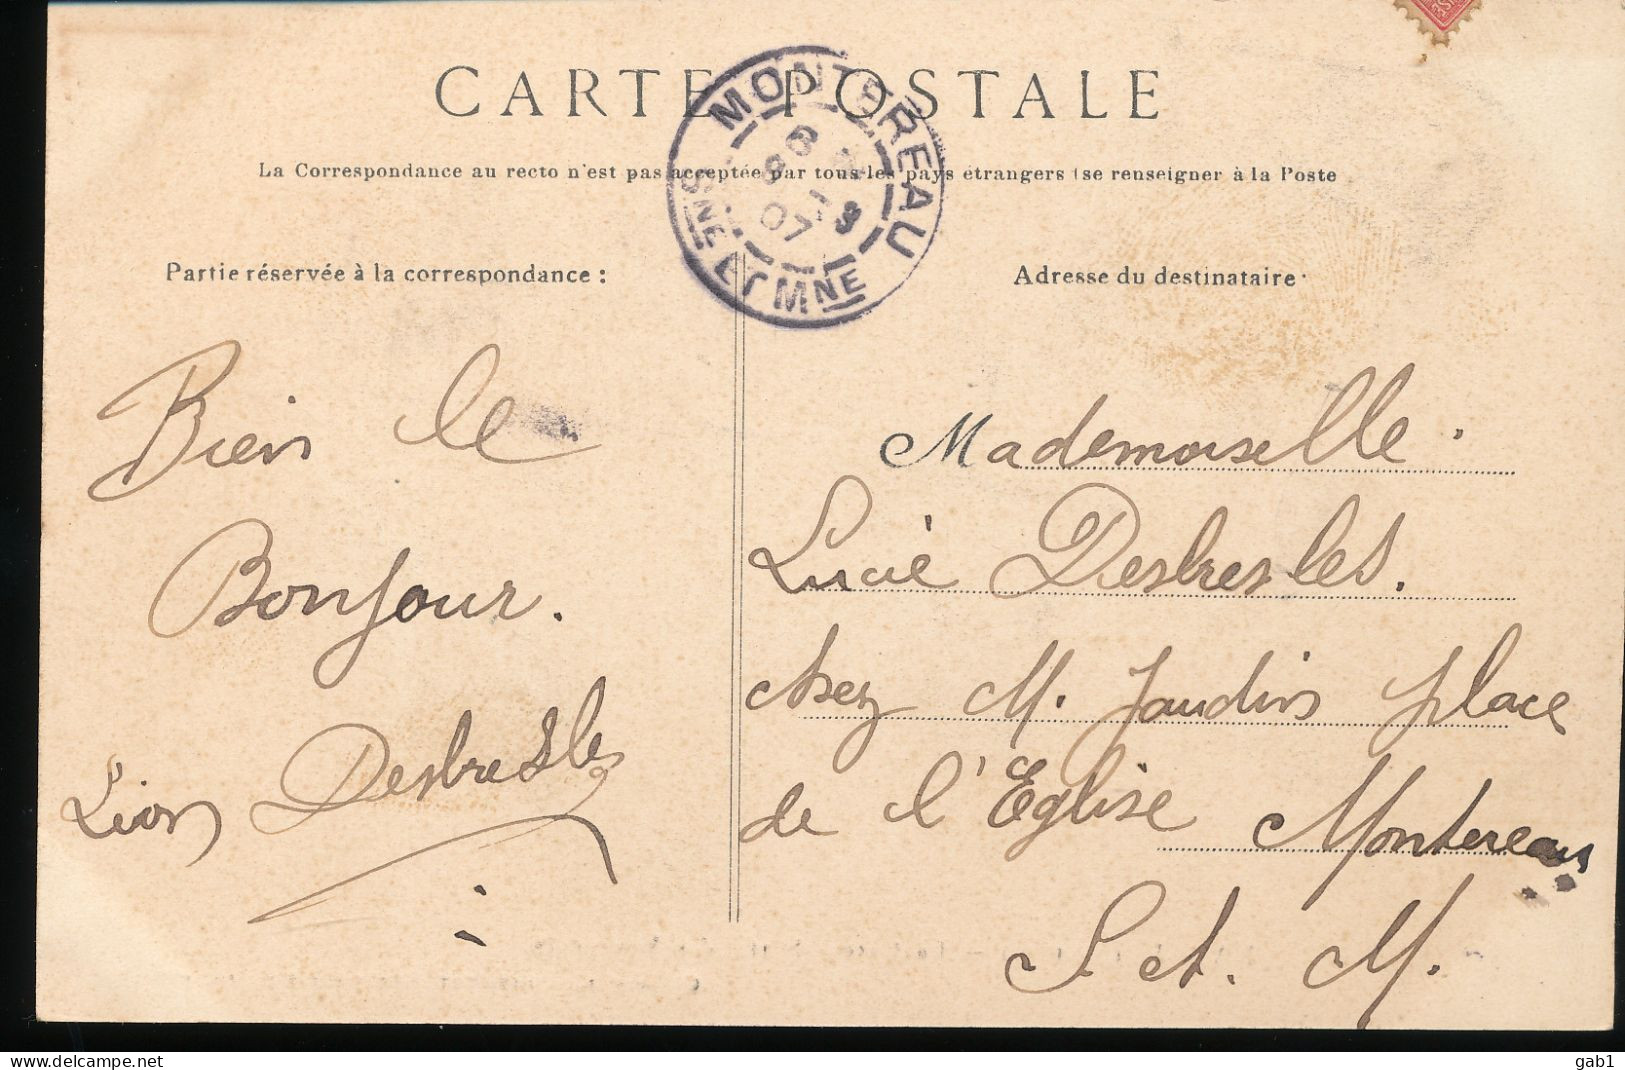 CARTE POSTALE
La Correspondance au recto n'est pas acceptée par tous les pays étrangers (se renseigner à la Poste
MONTEREAU
8
07
SNE ET MNE
Partie réservée à la correspondance :
Adresse du destinataire
Bien le
Bonjour.
Léon Destresles
Mademoiselle.
Lucie Destresles.
chez M. Jaudin place
de l'Eglise Montereau
S. et. M.
gab1